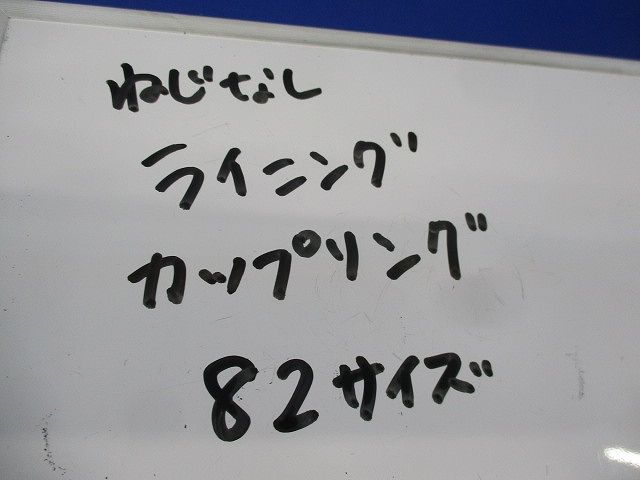 ねじなし
ライニング
カップリング
82サイズ